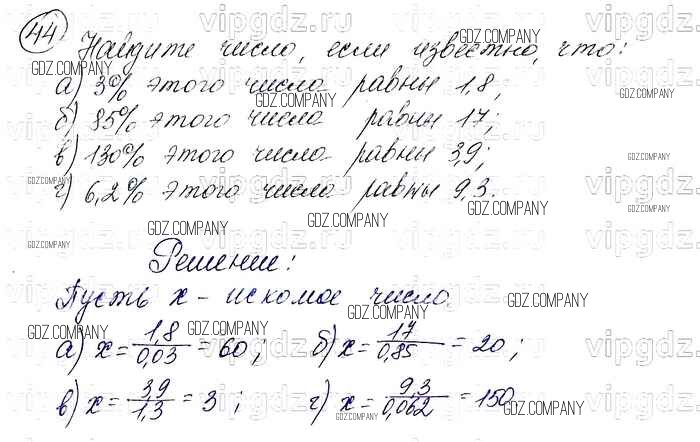 44 Найдите число, если известно, что:
а) 3% этого числа равны 1,8;
б) 85% этого числа равны 17;
в) 130% этого числа равны 3,9;
г) 6,2% этого числа равны 9,3.
Решение:
Пусть x – искомое число
а) x = 1,8/0,03 = 60; б) x = 17/0,85 = 20;
в) x = 3,9/1,3 = 3; г) x = 9,3/0,062 = 150
vipgdz.ru
GDZ.COMPANY